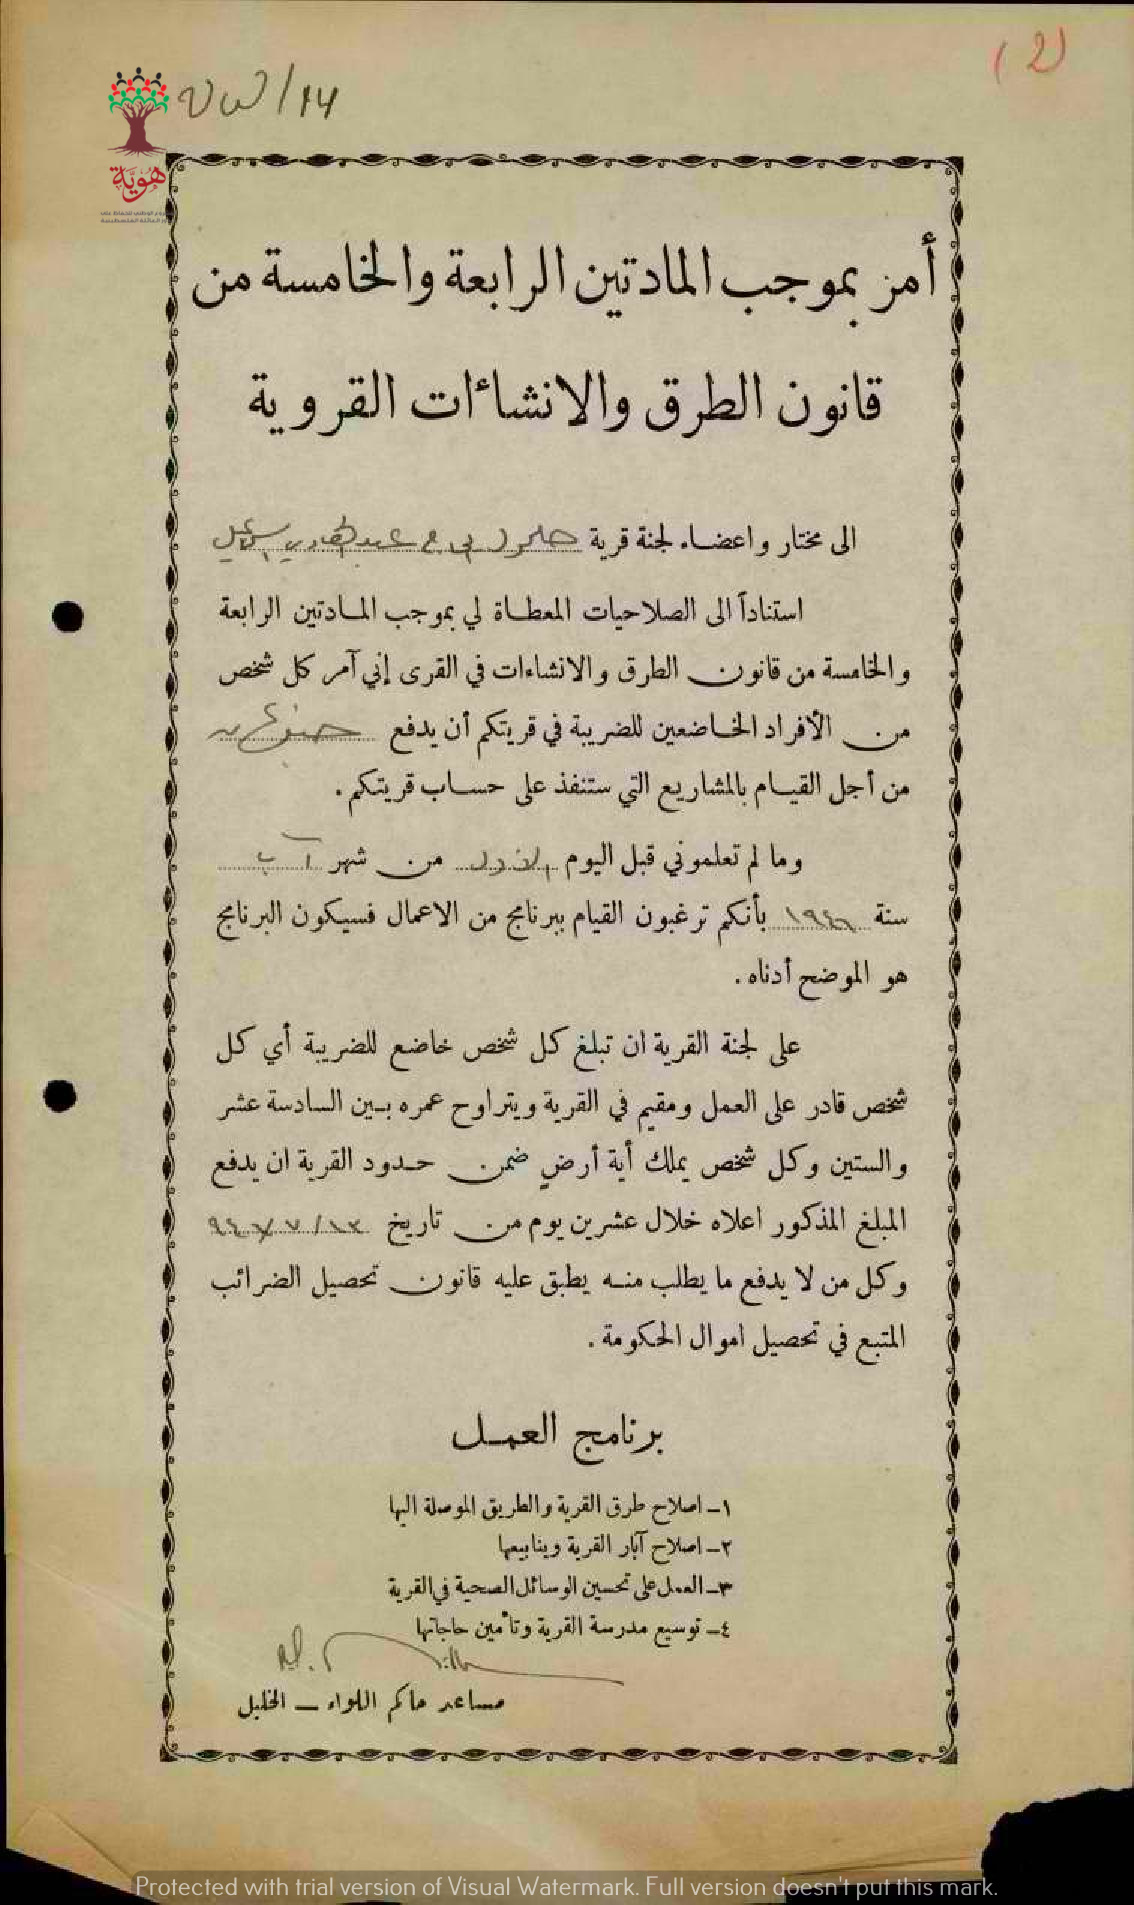 (2)
14/
هوية
أمر بموجب المادتين الرابعة والخامسة من
قانون الطرق والانشاءات القروية
الى مختار واعضاء لجنة قرية حلحول عبد الهادي اسماعيل
استناداً الى الصلاحيات المعطاة لي بموجب المادتين الرابعة
والخامسة من قانون الطرق والانشاءات في القرى إني آمر كل شخص
من الأفراد الخاضعين للضريبة في قريتكم أن يدفع
من أجل القيام بالمشاريع التي ستنفذ على حساب قريتكم .
وما لم تعلموني قبل اليوم الاول من شهر آب
سنة ١٩٤٦ بأنكم ترغبون القيام ببرنامج من الاعمال فسيكون البرنامج
هو الموضح أدناه .
على لجنة القرية ان تبلغ كل شخص خاضع للضريبة أي كل
شخص قادر على العمل ومقيم في القرية ويتراوح عمره بين السادسة عشر
والستين وكل شخص يملك أية أرضٍ ضمن حدود القرية ان يدفع
المبلغ المذكور اعلاه خلال عشرين يوم من تاريخ
وكل من لا يدفع ما يطلب منه يطبق عليه قانون تحصيل الضرائب
المتبع في تحصيل اموال الحكومة .
برنامج العمل
١ــ اصلاح طرق القرية والطريق الموصلة اليها
٢ــ اصلاح آبار القرية وينابيعها
٣ــ العمل على تحسين الوسائل الصحية في القرية
٤ــ توسيع مدرسة القرية وتأمين حاجاتها
مساعد حاكم اللواء ــ الخليل
Protected with trial version of Visual Watermark. Full version doesn't put this mark.